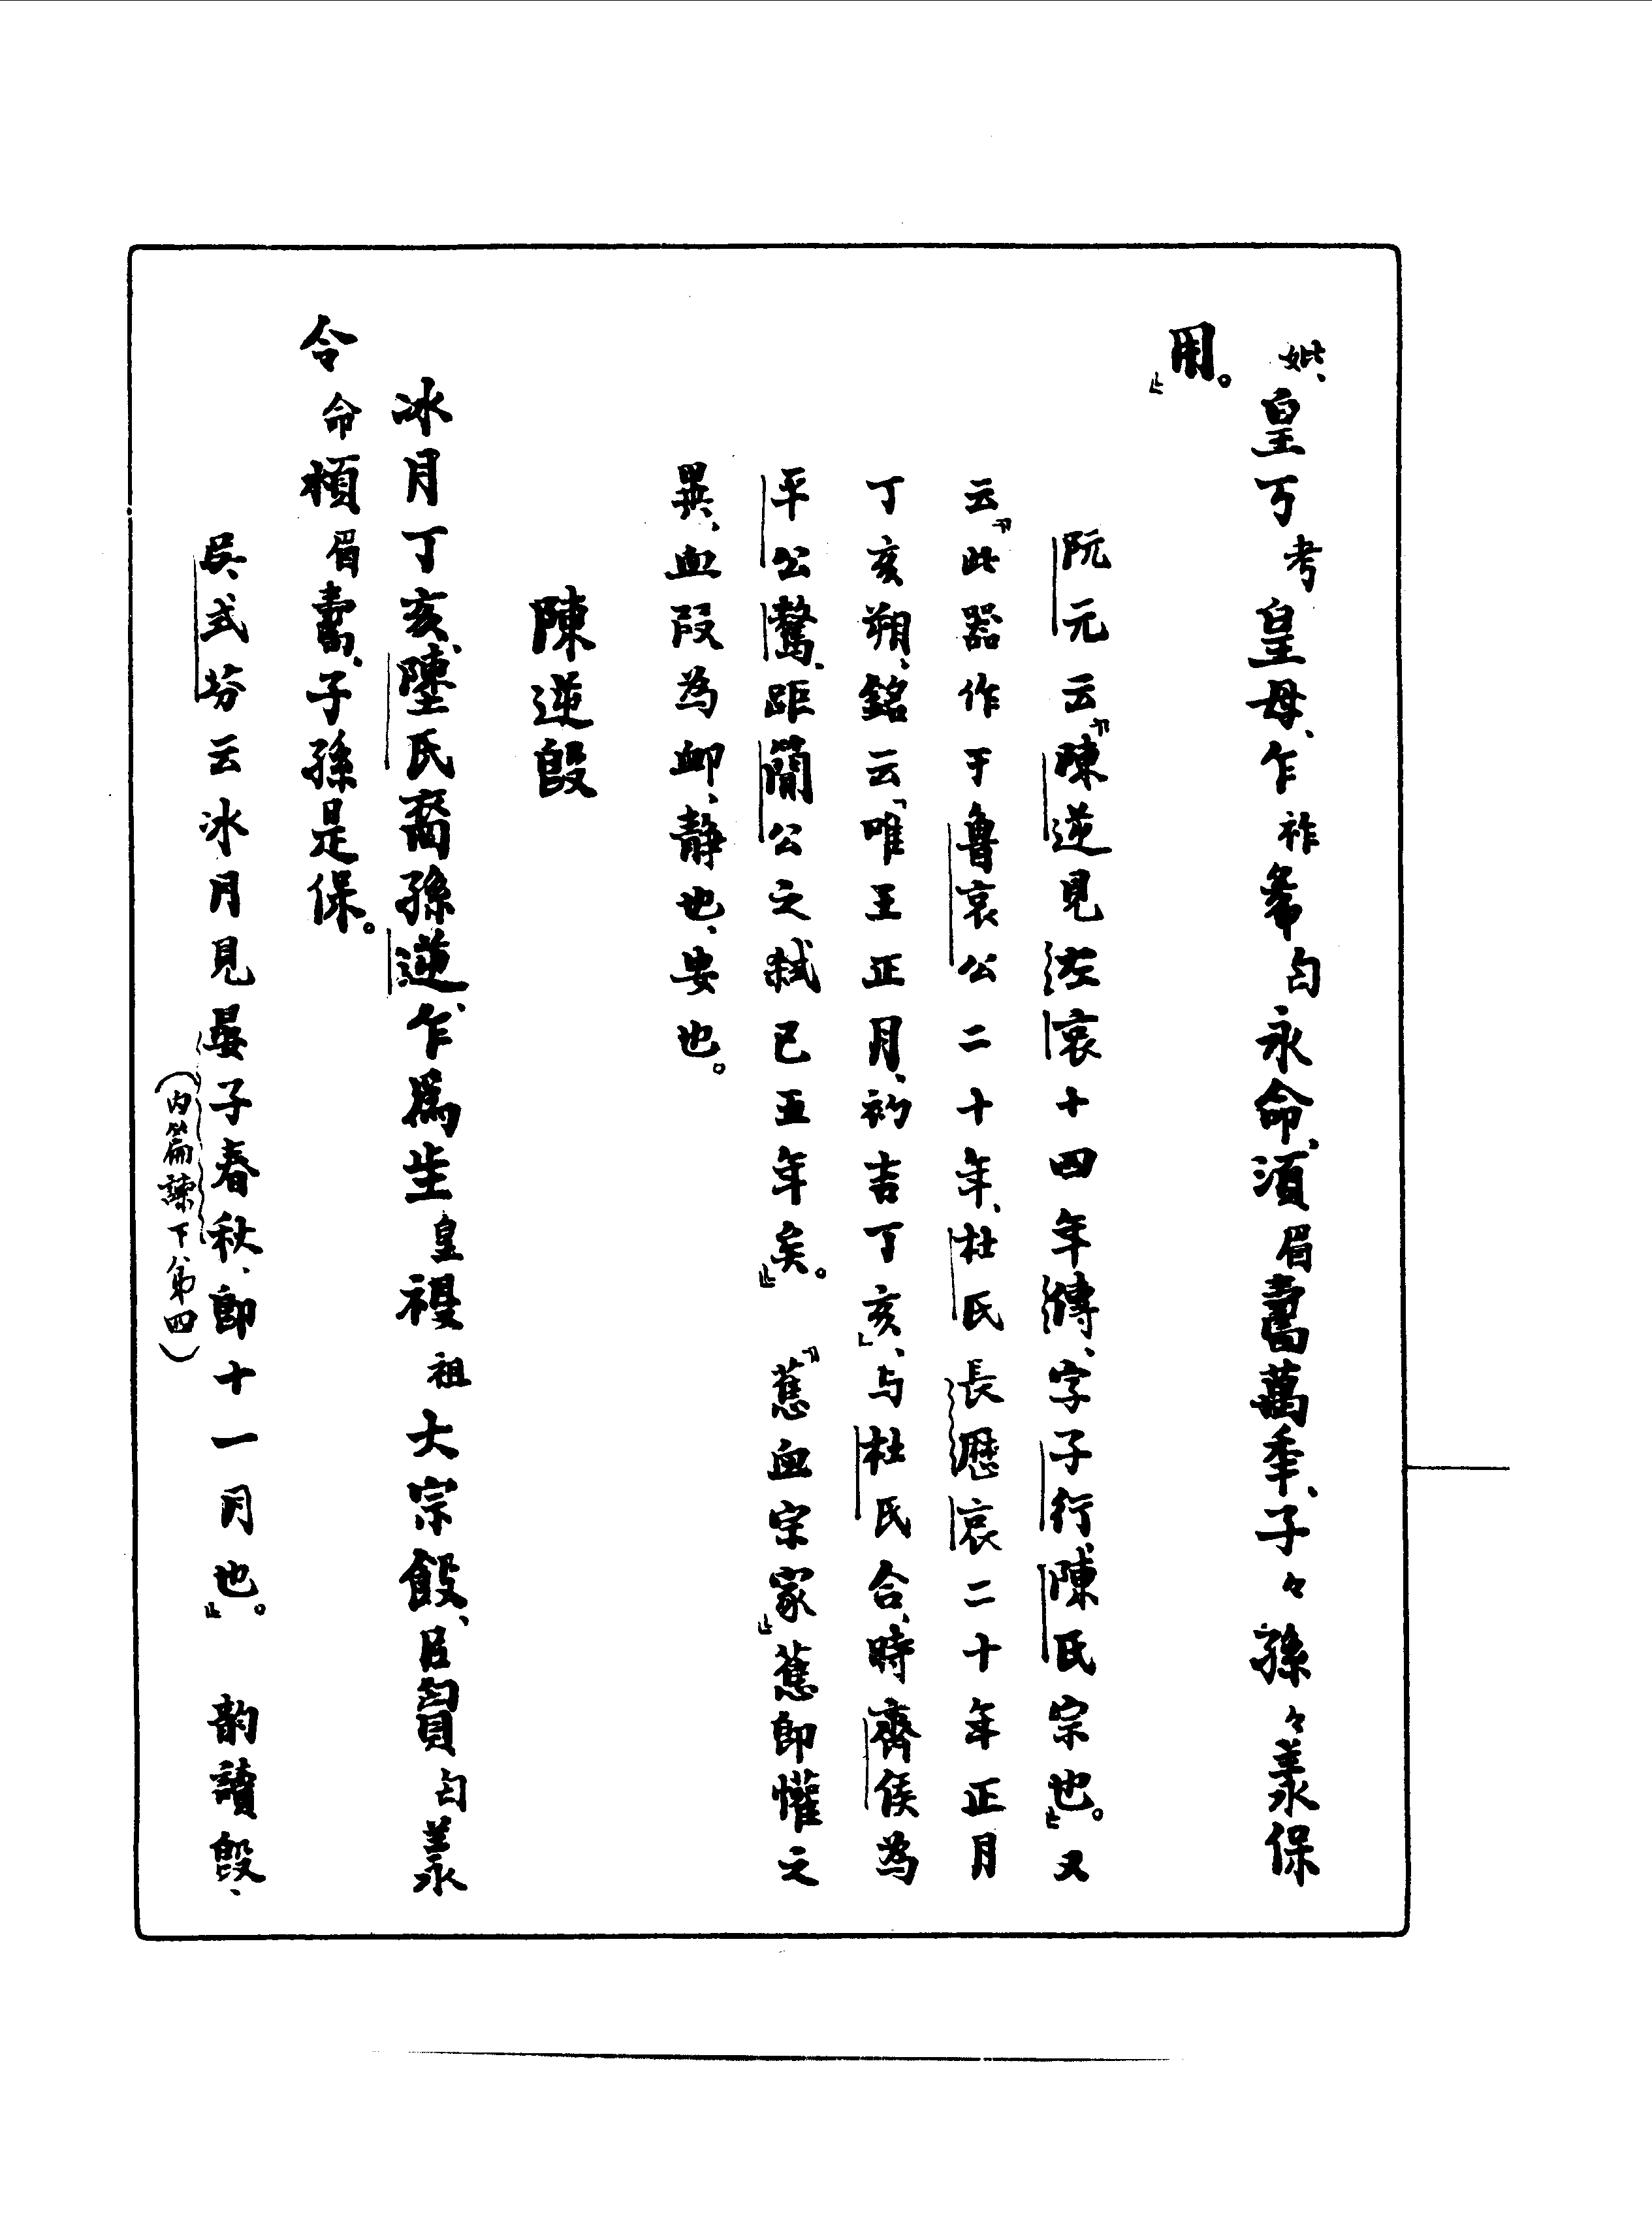 妣、皇丂考皇母、乍祚㝬匄永命、湏眉壽萬秊、子々孫々羕保
用。』
阮元云『陳逆見左哀十四年傳、字子行陳氏宗也。』又
云『此器作于魯哀公二十年、杜氏長歷哀二十年正月
丁亥朔、銘云「唯王正月、初吉丁亥」、与杜氏合、時齊侯為
平公驁、距簡公之弒已五年矣。』『蒦血宗家』蒦即懽之
異、血叚為卹、静也、安也。
陳逆𣪘
冰月丁亥、陳氏裔孫逆、乍爲生皇禝祖大宗𣪘、㠯匄匄羕
令命槓眉壽、子孫是保。
吳式芬云冰月見晏子春秋、即十一月也。』韵讀𣪘、
(内篇諫下第四)